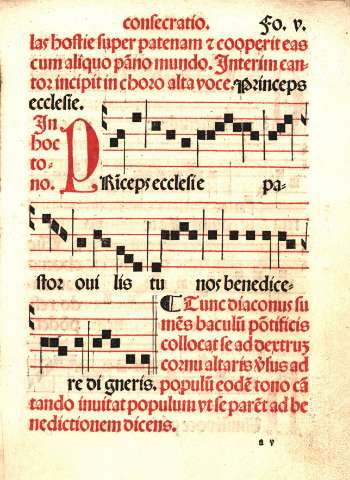 consecratio. Fo. v.
las hostie super patenam ⁊ cooperit eas
cum aliquo pãno mundo. Interim can-
tor incipit in choro alta voce. Princeps
ecclesie.
In
hoc
to-
no.
PRiceps ecclesie pa-
stor oui lis tu nos benedice-
re di gneris.
¶ Tunc diaconus su
mẽs baculũ põtificis
collocat se ad dextrũ
cornu altaris v̾sus ad
populũ eodẽ tono cã
tando inuitat populum vt se parẽt ad be
nedictionem dicens.
a v